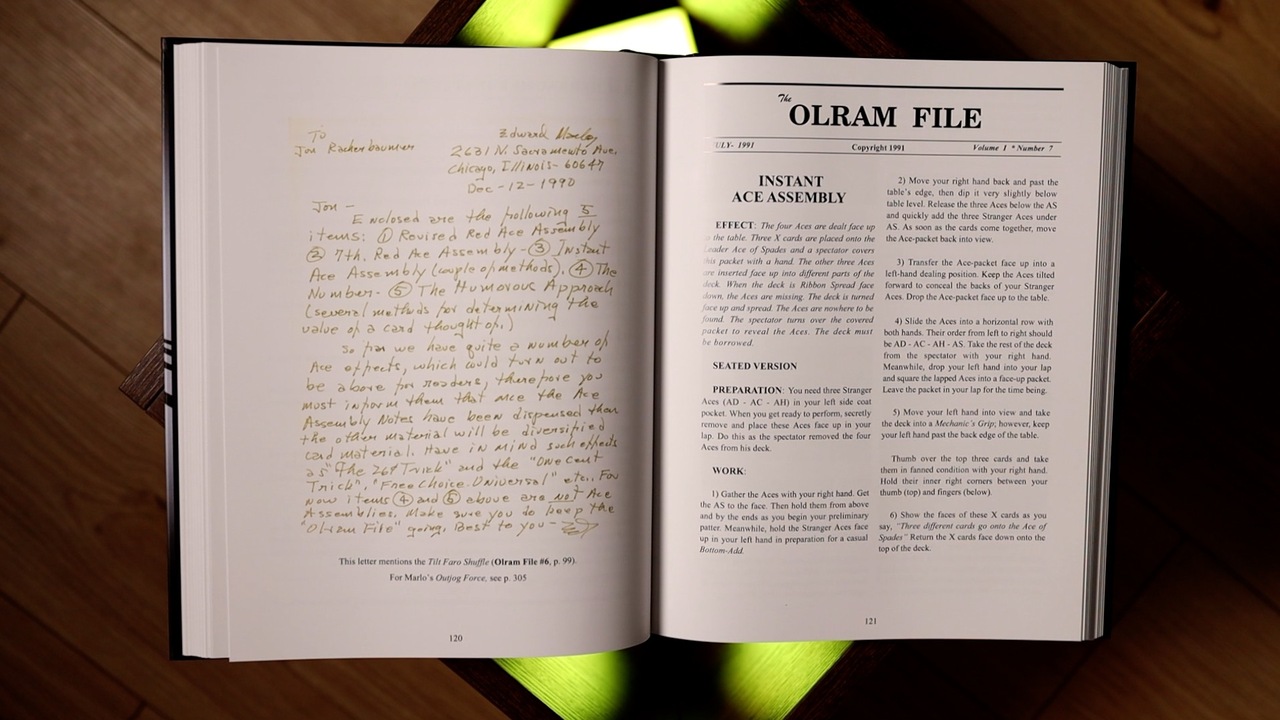 To
Jon Rackerbaumer
Edward Marlo
2631 N. Sacramento Ave.
Chicago, Illinois- 60647
Dec -12-1990
Jon -
Enclosed are the following 5
items: ① Revised Red Ace Assembly
② 7th. Red Ace Assembly - ③ Instant
Ace Assembly (couple of methods). ④ The
Number- ⑤ The Humorous Approach
(several methods for determining the
value of a card thought of.)
So far we have quite a number of
Ace effects, which could turn out to
be above for readers, therefore you
must inform them that once the Ace
Assembly Notes have been dispensed then
the other material will be diversified
card material. Have in mind such effects
as "The 26th Trick" and the "One Cent
Trick", "Free Choice Universal" etc.. For
now items ④ and ⑤ above are not Ace
Assemblies. Make sure you do keep the
"Olram File" going. Best to you -
This letter mentions the Tilt Faro Shuffle (Olram File #6, p. 99).
For Marlo's Outjog Force, see p. 305
120
The
OLRAM FILE
ULY- 1991 Copyright 1991 Volume 1 * Number 7
INSTANT
ACE ASSEMBLY
EFFECT: The four Aces are dealt face up
the table. Three X cards are placed onto the
Leader Ace of Spades and a spectator covers
this packet with a hand. The other three Aces
are inserted face up into different parts of the
deck. When the deck is Ribbon Spread face
down, the Aces are missing. The deck is turned
face up and spread. The Aces are nowhere to be
found. The spectator turns over the covered
packet to reveal the Aces. The deck must
be borrowed.
SEATED VERSION
PREPARATION: You need three Stranger
Aces (AD - AC - AH) in your left side coat
pocket. When you get ready to perform, secretly
remove and place these Aces face up in your
lap. Do this as the spectator removed the four
Aces from his deck.
WORK:
1) Gather the Aces with your right hand. Get
the AS to the face. Then hold them from above
and by the ends as you begin your preliminary
patter. Meanwhile, hold the Stranger Aces face
up in your left hand in preparation for a casual
Bottom-Add.
2) Move your right hand back and past the
table's edge, then dip it very slightly below
table level. Release the three Aces below the AS
and quickly add the three Stranger Aces under
AS. As soon as the cards come together, move
the Ace-packet back into view.
3) Transfer the Ace-packet face up into a
left-hand dealing position. Keep the Aces tilted
forward to conceal the backs of your Stranger
Aces. Drop the Ace-packet face up to the table.
4) Slide the Aces into a horizontal row with
both hands. Their order from left to right should
be AD - AC - AH - AS. Take the rest of the deck
from the spectator with your right hand.
Meanwhile, drop your left hand into your lap
and square the lapped Aces into a face-up packet.
Leave the packet in your lap for the time being.
5) Move your left hand into view and take
the deck into a Mechanic's Grip; however, keep
your left hand past the back edge of the table.
Thumb over the top three cards and take
them in fanned condition with your right hand.
Hold their inner right corners between your
thumb (top) and fingers (below).
6) Show the faces of these X cards as you
say, "Three different cards go onto the Ace of
Spades" Return the X cards face down onto the
top of the deck.
121